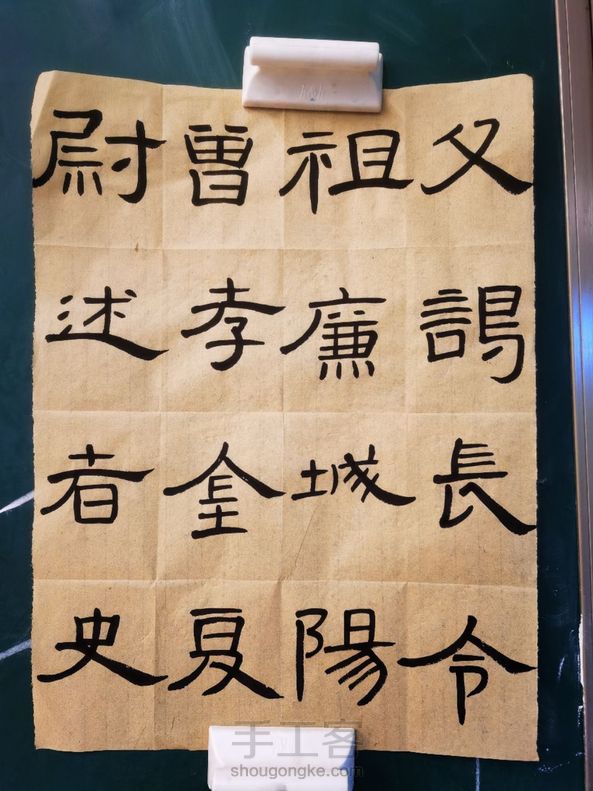 尉曾祖父
述孝廉謁
者金城長
史夏陽令
手工客
shougongke.com